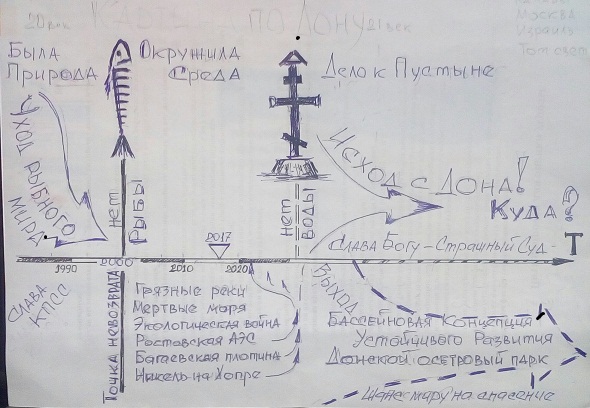 20 век
по Дону
21 век
Москва
Израиль
Тот свет
Была
Природа
Окружила
Среда
Дело к Пустыне
Уход рыбного
мира
нет
Рыбы
нет
Воды
Исход с Дона!
Куда?
Слава Богу - Страшный Суд -
Т
2017
1990
2000
2010
2020
Слава
КПСС
Точка невозврата
Грязные реки
Мертвые моря
Экологическая война
Ростовская АЭС
Багаевская плотина
Никель на Хопре
Выход
Бассейновая Концепция
Устойчивого Развития
Донской осетровый парк
Шанс миру на спасение